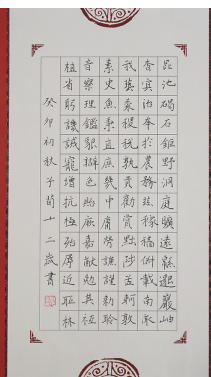 昆池碣石鉅野洞庭曠遠緜邈巖岫
杳冥治本於農務茲稼穡俶載南畝
我藝黍稷稅熟貢勸賞黜陟孟軻敦
素史魚秉直庶幾中庸勞謙謹勅聆
音察理鑑貌辦色貽厥嘉猷勉其祗
植省躬譏誡寵增抗極殆辱近恥林
癸卯初秋子荀十二歲書